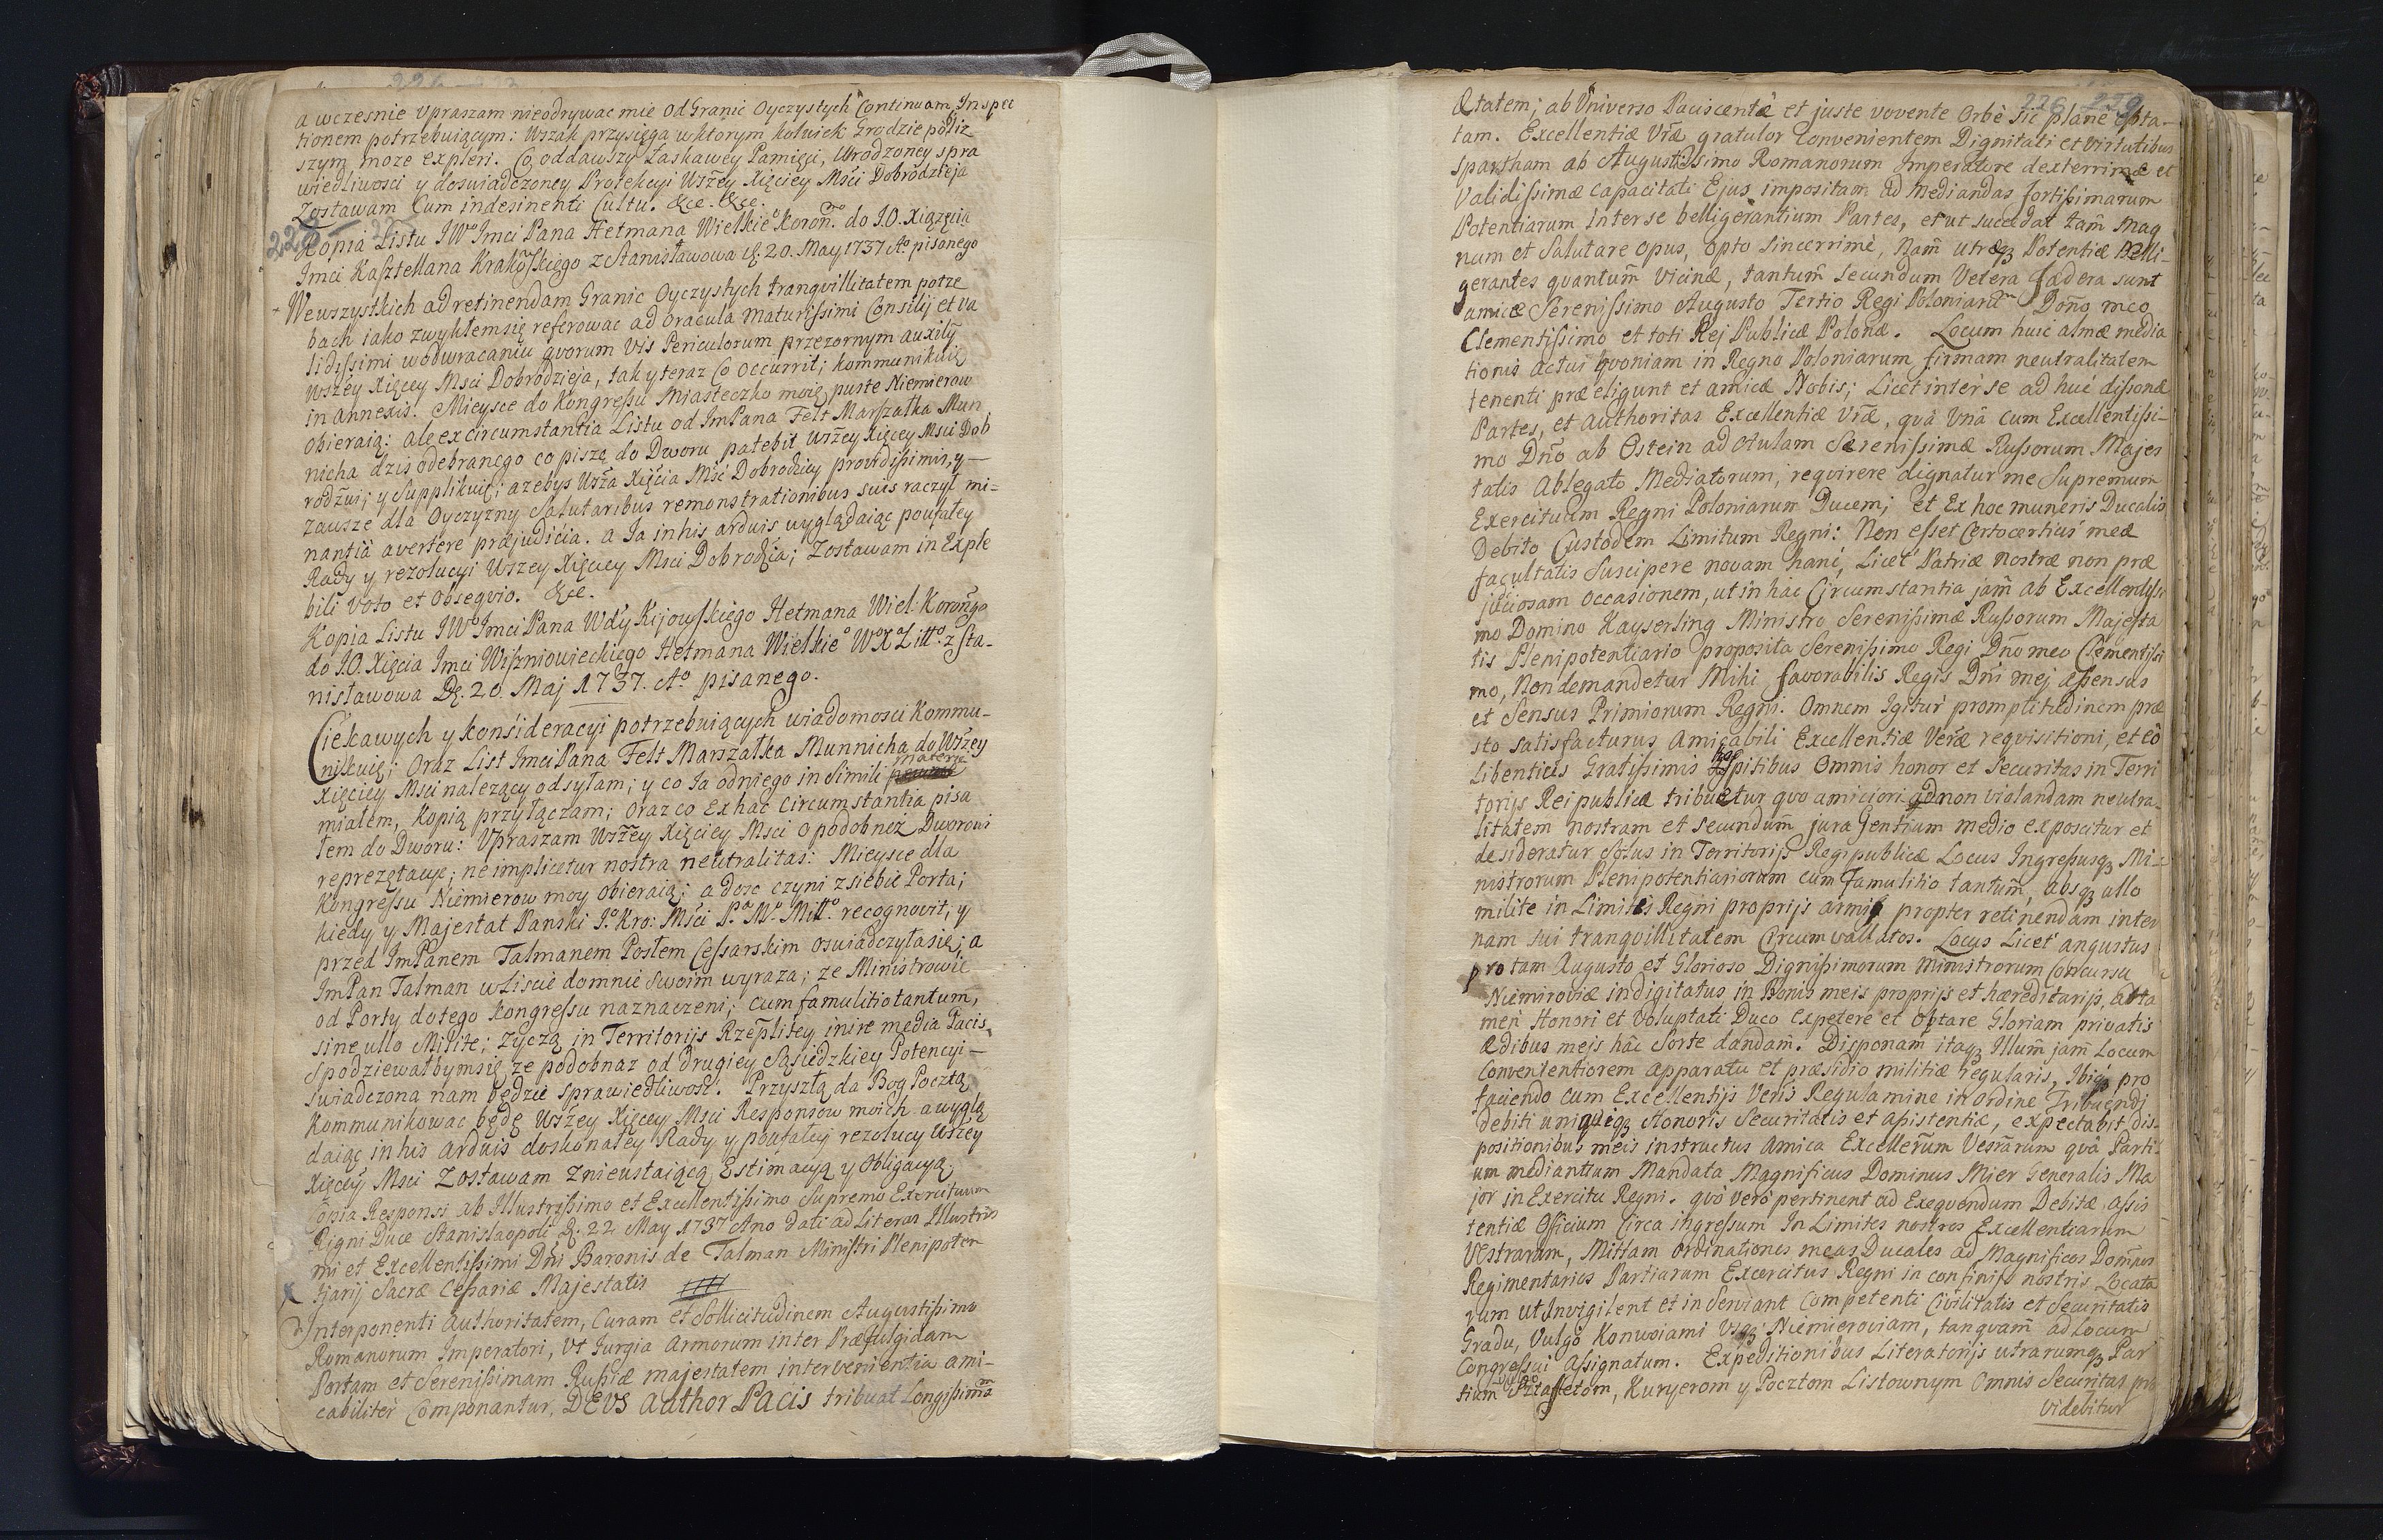 a wczesnie Upraszam nieodrywac mie od Granic Oyczystych Continuam Inspec
tionem potrzebuiącym: Wszak przysięga wktorym kolwiek Grodzie pobliz
szym moze expleri. Co oddawszy Łaskawey Pamięci, Urodzoney spra
wiedliwosci y doswiadczoney Protekcyi Wszey Xięciey Msci Dobrodzieja
Zostawam Cum indesinenti Cultu. &ce. &ce.
Kopia Listu JWo Imci Pana Hetmana Wielkieo Koron.o do J.O. Xiązęcia
Imci Kasztellana Krakoskiego z Stanisławowa d. 20. May 1737 Ao pisanego
Wewszystkich ad retinendam Granic Oyczystych tranqvillitatem potrze
bach iako zwykłemsię referowac ad oracula maturissimi Consilij et va
lidissimi wodwracaniu qvorum vis Periculorum przezornym auxilij
Wszey Xięcey Msci Dobrodzieja, tak y teraz Co occurrit; kommunikuię
in annexis. Mieysce do Kongressu Miasteczko moię puste Niemierow
obieraią: ale ex circumstantia Listu od ImPana Felt Marszałka Mun
nicha dzis odebranego co piszę do Dworu patebit Wszey Xięcey Msci Dob
rodzwi; y Supplikuię; azebys Wsza Xięcia Msc Dobrodziey providissimis, y
zawsze dla Oyczyzny Salutaribus remonstrationibus suis raczył mi=
nantia avertere præjudicia. a Ja in his arduis wyglądaiąc poufałey
Rady y rezolucyi Wszey Xięciey Msci Dobrodzia; Zostawam in Exple
bili Voto et Obseqvio. &ce.
Kopia Listu JWo Imci Pana Wdy Kijowskiego Hetmana Wiel: Koronngo
do J.O. Xięcia Imci Wiszniowieckiego Hetmana Wielkieo WoX Litto. z Sta-
nisławowa D. 20. Maj 1737. Ao pisanego.
Ciekawych y konsideracyi potrzebuiących wiadomosci Kommu-
nikuię; Oraz List Imci Pana Felt Marszałka Munnicha do Wszey
Xięciey Msci nalezący odsyłam; y co Ja odniego in Simili materie
miałem, Kopią przyłączam; Oraz co Ex hac Circumstantia pisa
łem do Dworu: Upraszam Wszey Xięciey Msci o podobnez Dworowi
reprezętacye; ne implicetur nostra neutralitas: Mieysce dla
Kongressu Niemierow moy obieraią; a dosc czyni zsiebie Porta;
kiedy y Majestat Panski Jo. Kro: Msci Pa Mo Mitto. recognovit, y
przed ImPanem Talmanem Posłem Cessarskim oswiadczyłasię; a
ImPan Talman w Liscie domnie Swoim wyraza; ze Ministrowie
od Porty dotego Kongressu naznaczeni; cum famulitio tantum,
sine ullo Milite; zyczą in Territorijs Rzeplitey inire media Pacis
Spodziewałbymsię, ze podobnaz od drugiey Sąsiedzkiey Potencyi-
swiadczona nam będzie sprawiedliwosc. Przyszłą, da Bog Pocztą
Kommunikowac będę Wszey Xięcey Msci Responsow moich a wyglą
daiąc in his Arduis doskonałey Rady y poufałey rezolucy Wszey
Xięcey Msci Zostawam znieustaiącą Estimacyą y Obligacyą.
Copia Responsi ab Illustrissimo et Excellentissimo Supremo Exercituum
Regni Duce Stanislaopoli d. 22 May 1737 Ano dati ad literas Illustris
mi et Excellentissimi Dni Baronis de Talman Ministri Plenipoten
tiarij Sacræ Cesariæ Majestatis
Interponenti Authoritatem, Curam et Sollicitudinem Augustissimo
Romanorum Imperatori, Ut Jurgia Armorum inter Præfulgidam
Portam et Serenissimam Russiæ majestatem intervenientia ami-
cabiliter Componantur, DEVS Author Pacis tribuat Longissimam
Ætatem; ab Universo Paciscente et juste vovente Orbe sic plane opta-
tam. Excellentiæ Vræ gratulor Convenientem Dignitati et Virtutibus
Spartham ab Augustissimo Romanorum Imperatore dexterrimæ et
Validissimæ Capacitati Ejus impositam ad mediandas fortissimarum
Potentiarum inter se belligerantium Partes, et ut succedat tam mag
num et Salutare Opus, Opto Sincerrime, Nam utræq Potentiæ Belli-
gerantes quantum Vicinæ, tantum secundum Vetera fædera sunt
amicæ Serenissimo Augusto Tertio Regi Poloniarum Dno meo
Clementissimo et toti Rej Publicæ Polonæ. Locum huic almæ media
tionis actui qvoniam in Regno Poloniarum firmam neutralitatem
tenenti præeligunt et amicæ Nobis; Licet inter se ad huc dissonæ
Partes, et Authoritas Excellentiæ Vræ, qvâ Vnâ cum Excellentissi-
mo Dno ab Ostein ad Aulam Serenissimæ Russorum Majes
tatis Ablegato Mediatorum, reqvirere dignatur me Supremum
Exercituum Regni Poloniarum Ducem; et Ex hoc muneris Ducalis
Debito Custodem Limitum Regni: Non esset Certo certius meæ
facultatis Suscipere novam hanc, Licet Patriæ nostræ non præ
judiciosam occasionem, ut in hac Circumstantia jam ab Excellentissi
mo Domino Kayserling Ministro Serenissimæ Russorum Majesta
tis Plenipotentiario proposita Serenissimo Regi Dno meo Clementissi
mo, Non demandetur Mihi favorabilis Regis Dni mej assensus
et Sensus Primiorum Regni. Omnem Igitur promptitudinem præ
sto satisfacturus Amicabili Excellentiæ Veræ reqvisitioni, et eo
Libentius Gratissimis Hospitibus Omnis honor et Securitas in Terri
torijs Reipublicæ tribuetur qvo amiciori ad non violandam neutra-
litatem nostram et secundum jura Gentium medio exposcitur et
desideratur Solus in Territorijs Regipublicæ Locus Ingressusq Mi-
nistrorum Plenipotentiariorum cum famulitio tantum, absq ullo
milite in Limites Regni proprijs armis propter retinendam inter
nam sui tranqvillitatem Circumvallatos. Locus Licet angustus
pro tam Augusto et Glorioso Dignissimorum Ministrorum Concursu
Niemiroviæ indigitatus in Bonis meis proprijs et hæreditarijs, atta
men Honori et Voluptati Duco expetere et Optare Gloriam privatis
Ædibus meis hâc Sorte dandam. Disponam itaq Illum jam Locum
Convenientiorem apparatu et præsidio militiæ regularis, Ibiq pro
faciendo cum Excellentijs Veris Regulamine in Ordine Tribuendi
debiti uniquiq Honoris Securitatis et assistentiæ, expectabit dis-
positionibus meis instructus Amica Excellerum Vesrarum qvâ Parti
um mediantium Mandata Magnificus Dominus Mier Generalis Ma
jor in Exercitu Regni. qvo vero pertinent ad Exeqvendum Debitæ Assis
tentiæ Officium Circa ingressum In Limites nostros Excellentiarum
Vestrarum, Mittam Ordinationes meas Ducales ad Magnificos Domnos
Regimentarios Partiarum Exercitus Regni in confinijs nostris Locata
rum ut Invigilent et inserviant Competenti Civilitatis et Securitatis
Gradu, Vulgo Konwoiami Usq Niemieroviam, tanqvam ad Locum
Congressui Assignatum. Expeditionibus Literatorijs utrarumq Par
tium Sztaffetom, Kuryerom y Pocztom Listownym Omnis Securitas pro
videbitur